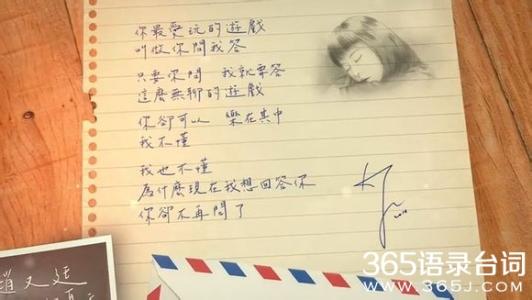 你最愛玩的遊戲
叫做你問我答
只要你問 我就要答
這麼無聊的遊戲
你卻可以 樂在其中
我不懂
我也不懂
為什麼現在我想回答你
你卻不再問了
趙又廷
365语录台词
www.365j.com